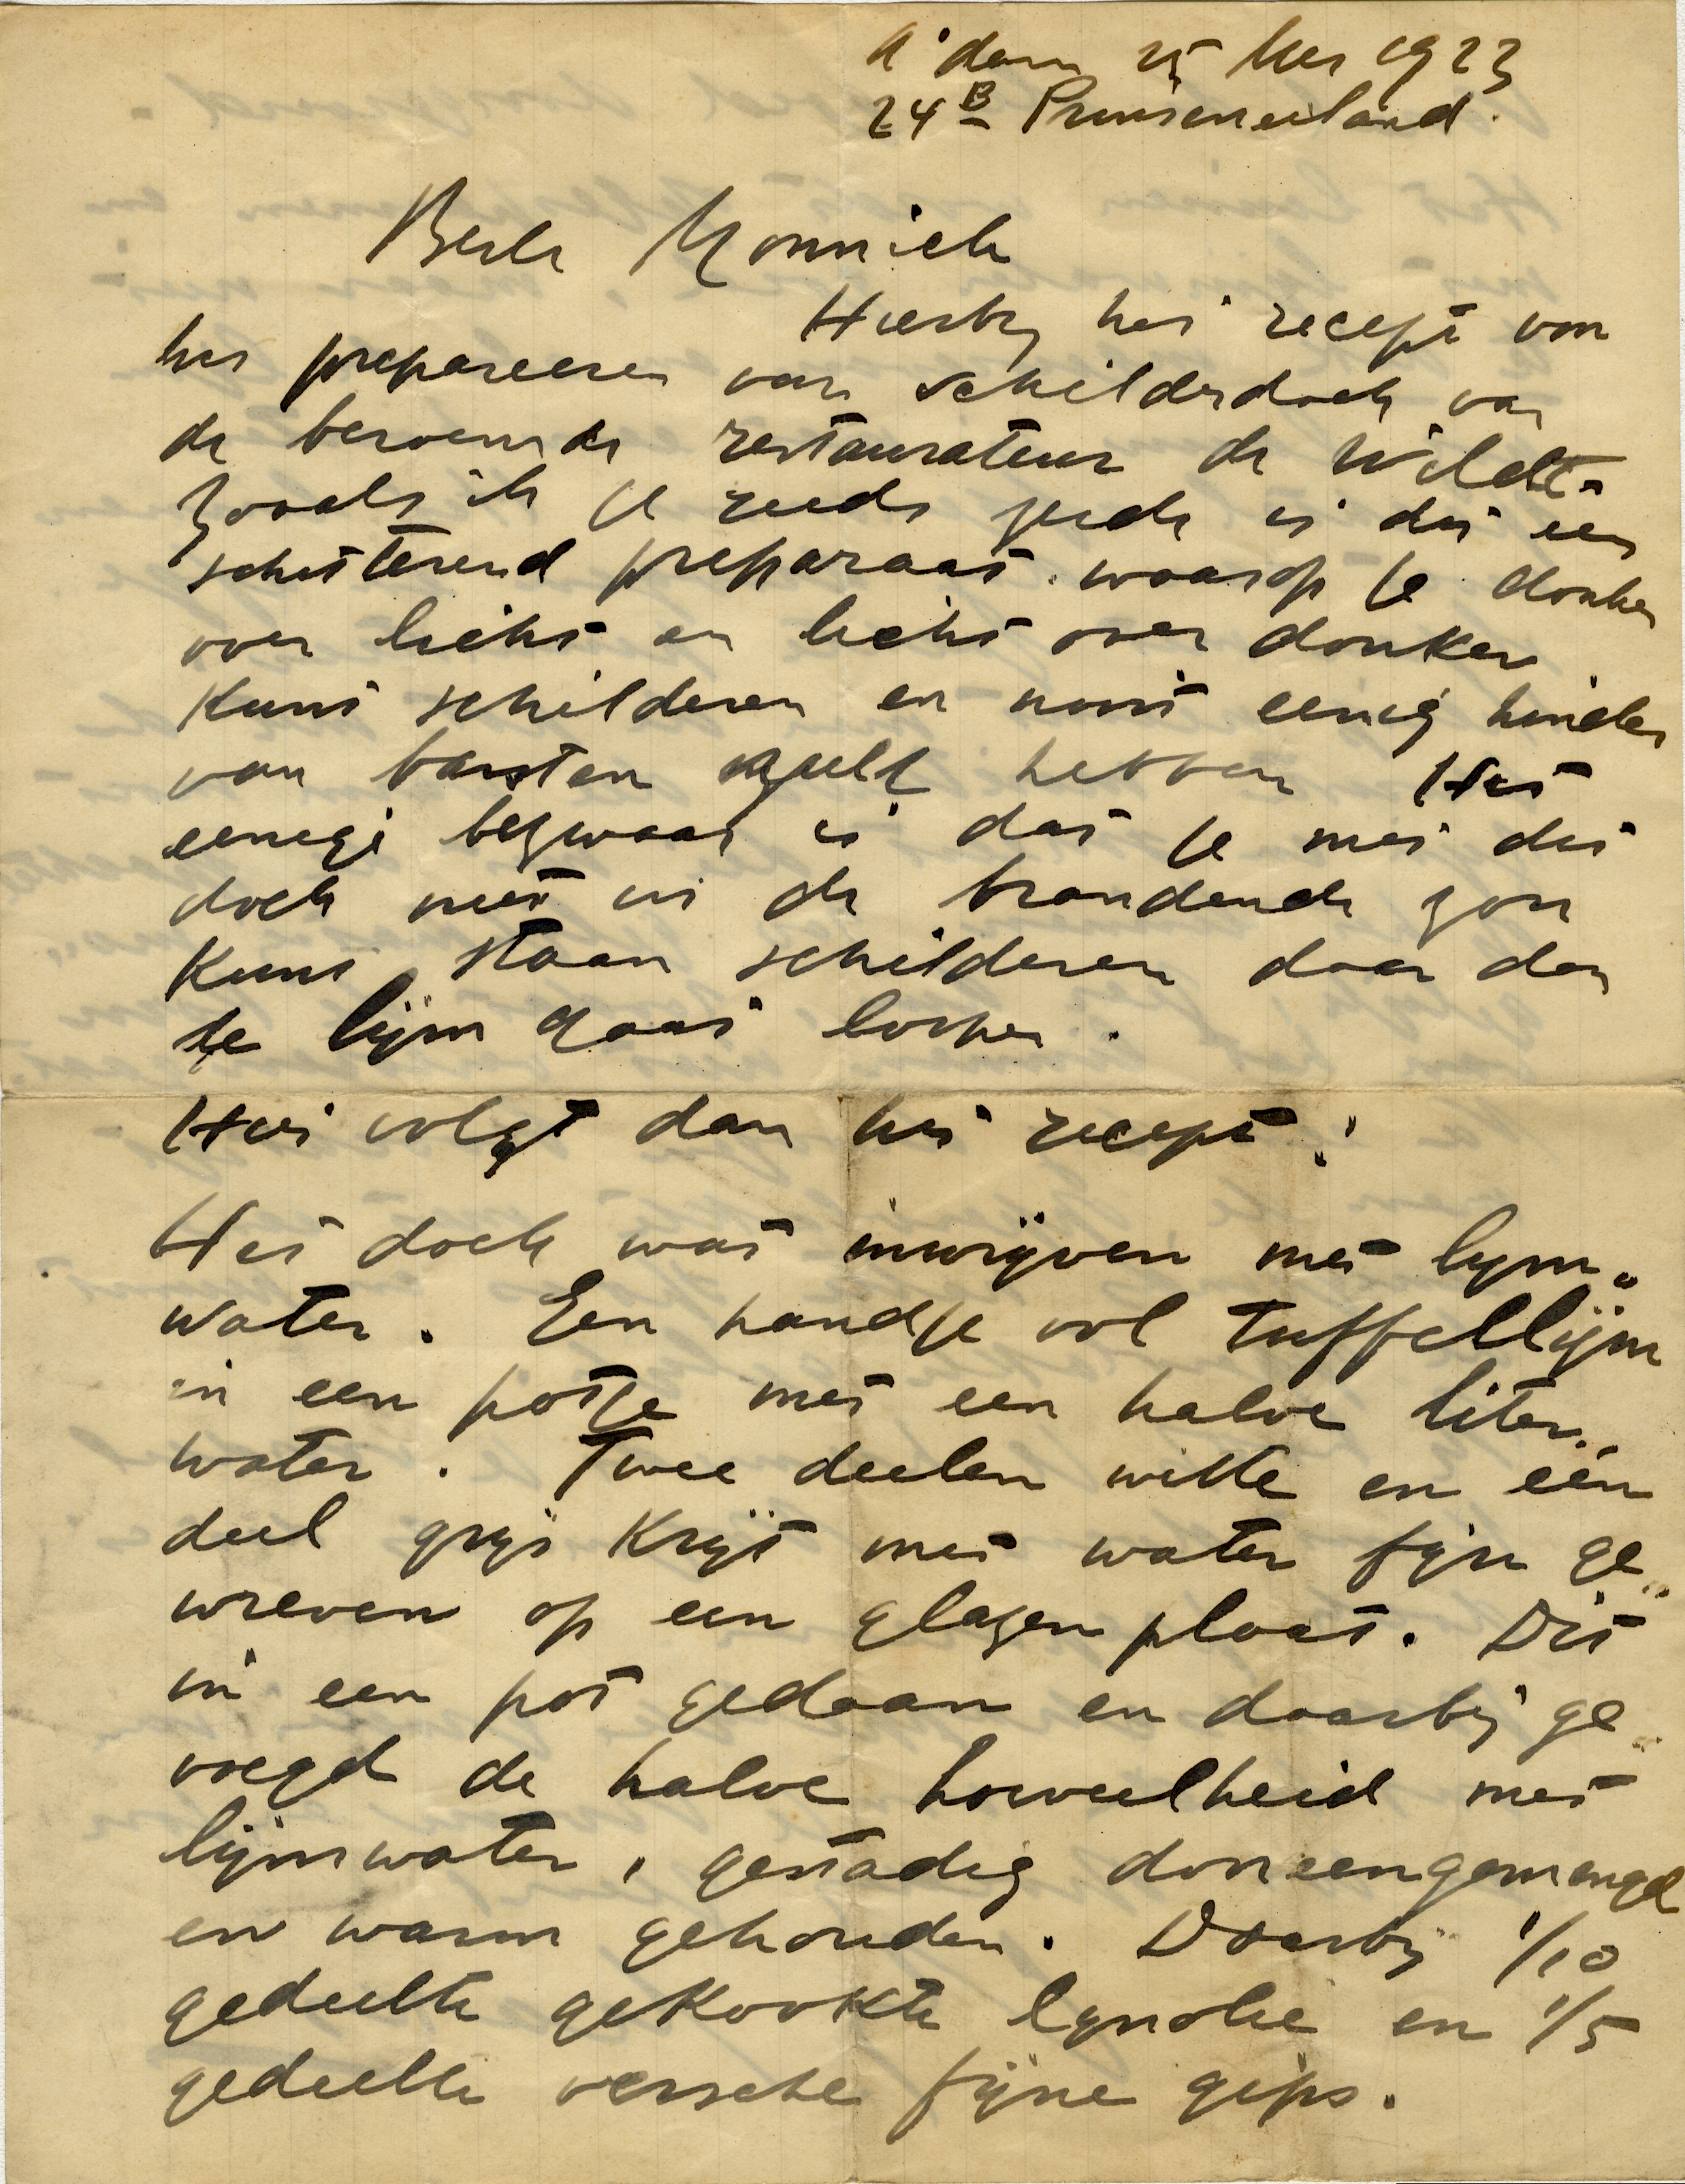 A'dam 25 Mei 1923
24B Prinseneiland.
Beste Monnich
Hierbij het recept van
het prepareeren van schilderdoek van
de beroemde restaurateur de Wildt.
Zooals ik je reeds zeide is dit een
schitterend preparaat waarop je donker
over licht en licht over donker
kunt schilderen en nooit eenig hinder
van barsten zult hebben Het
eenige bezwaar is dat je met dit
doek niet in de brandende zon
kunt staan schilderen daar dan
de lijm gaat losken.
Hier volgt dan het recept:
Het doek wat inwrijven met lijm„
water. Een handje vol tuffellijm
in een potje met een halve liter
water. Twee deelen witte en één
deel grijs krijt met water fijn ge„
wreven op een glazen plaat. Dit
in een pot gedaan en daarbij ge„
voegd de halve hoeveelheid met
lijmwater, gestadig dooreengemengd
en warm gehouden. Daarbij 1/10
gedeelte gekookte lijnolie en 1/5
gedeelte versche fijne gips.